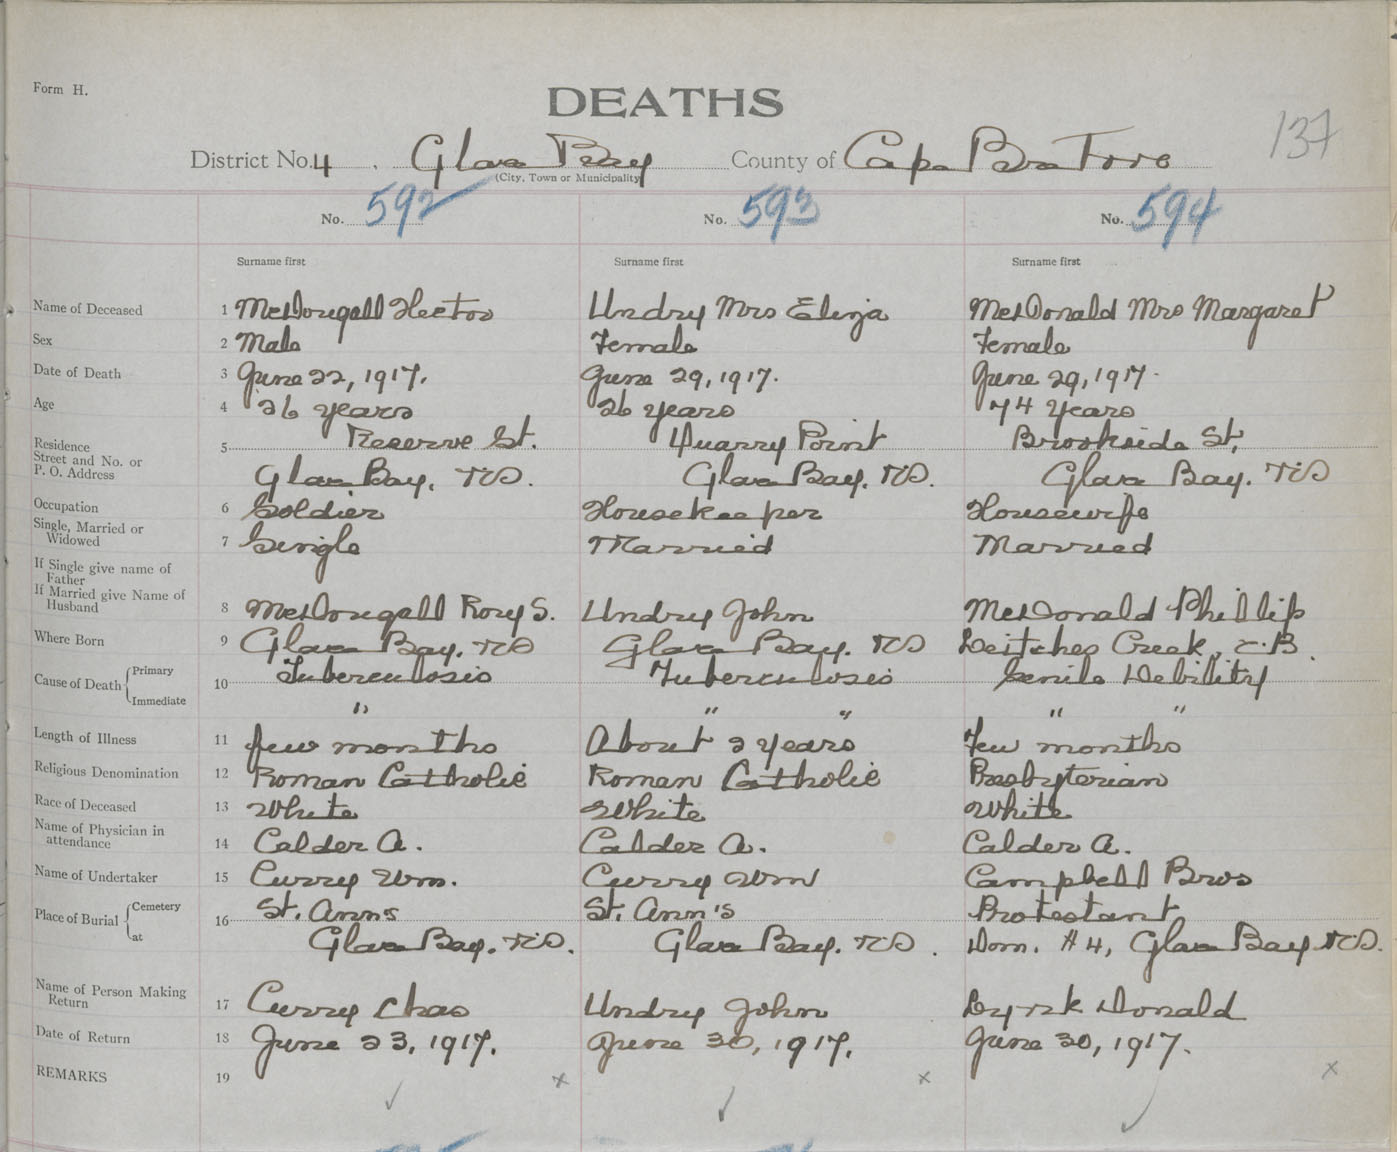 Form H.
DEATHS
137
District No. 4. Glace Bay County of Cape Breton
(City, Town or Municipality)
No. 592 No. 593 No. 594
Surname first Surname first Surname first
Name of Deceased 1 McDougall Hector Undry Mrs Eliza McDonald Mrs Margaret
Sex 2 Male Female Female
Date of Death 3 June 22, 1917. June 29, 1917. June 29, 1917.
Age 4 26 years 26 years 74 years
Residence 5 Reserve St. Quarry Point Brookside St,
Street and No. or
P. O. Address Glace Bay, NS. Glace Bay. NS. Glace Bay. NS
Occupation 6 Soldier Housekeeper Housewife
Single, Married or
Widowed 7 Single Married Married
If Single give name of
Father
If Married give Name of
Husband 8 McDougall Rory S. Undry John McDonald Phillip
Where Born 9 Glace Bay. NS Glace Bay. NS Leitches Creek, C.B.
Cause of Death Primary 10 Tuberculosis Tuberculosis Senile Debility
Immediate " " " " "
Length of Illness 11 few months About 2 years Few months
Religious Denomination 12 Roman Catholic Roman Catholic Presbyterian
Race of Deceased 13 White White White
Name of Physician in
attendance 14 Calder A. Calder A. Calder A.
Name of Undertaker 15 Curry Wm. Curry Wm Campbell Bros
Place of Burial Cemetery 16 St. Ann's St. Ann's Protestant
at Glace Bay. NS. Glace Bay. NS. Dom. #4, Glace Bay NS.
Name of Person Making
Return 17 Curry Chas Undry John Donald
Date of Return 18 June 23, 1917. June 30, 1917. June 30, 1917.
REMARKS 19 x x x